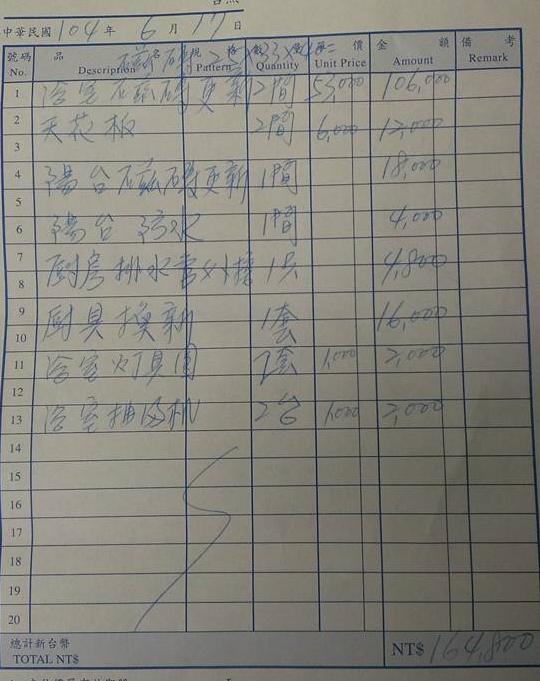 中華民國 104 年 6 月 17 日
號碼 品名 規格 數量 單價 金額 備考
No. Description Pattern Quantity Unit Price Amount Remark
磁磚
1 浴室磁磚更新 2間 53,000 106,000
2 天花板 2間 6,000 12,000
3
4 陽台磁磚更新 1間 18,000
5
6 陽台防水 1間 4,000
7 廚房排水管外接 1只 4,800
8
9 廚具換新 1套 16,000
10
11 浴室灯具 2套 1,000 2,000
12
13 浴室抽風机 2台 1,000 2,000
14
15
16
17
18
19
20
總計新台幣
TOTAL NT$ NT$ 164,800